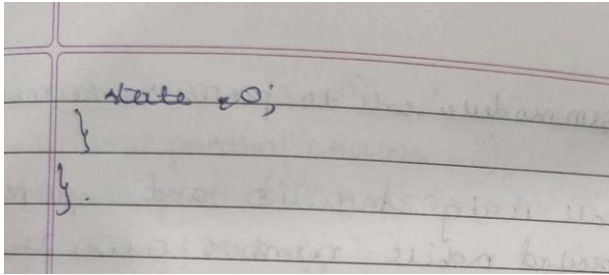 state = 0;
}
}.